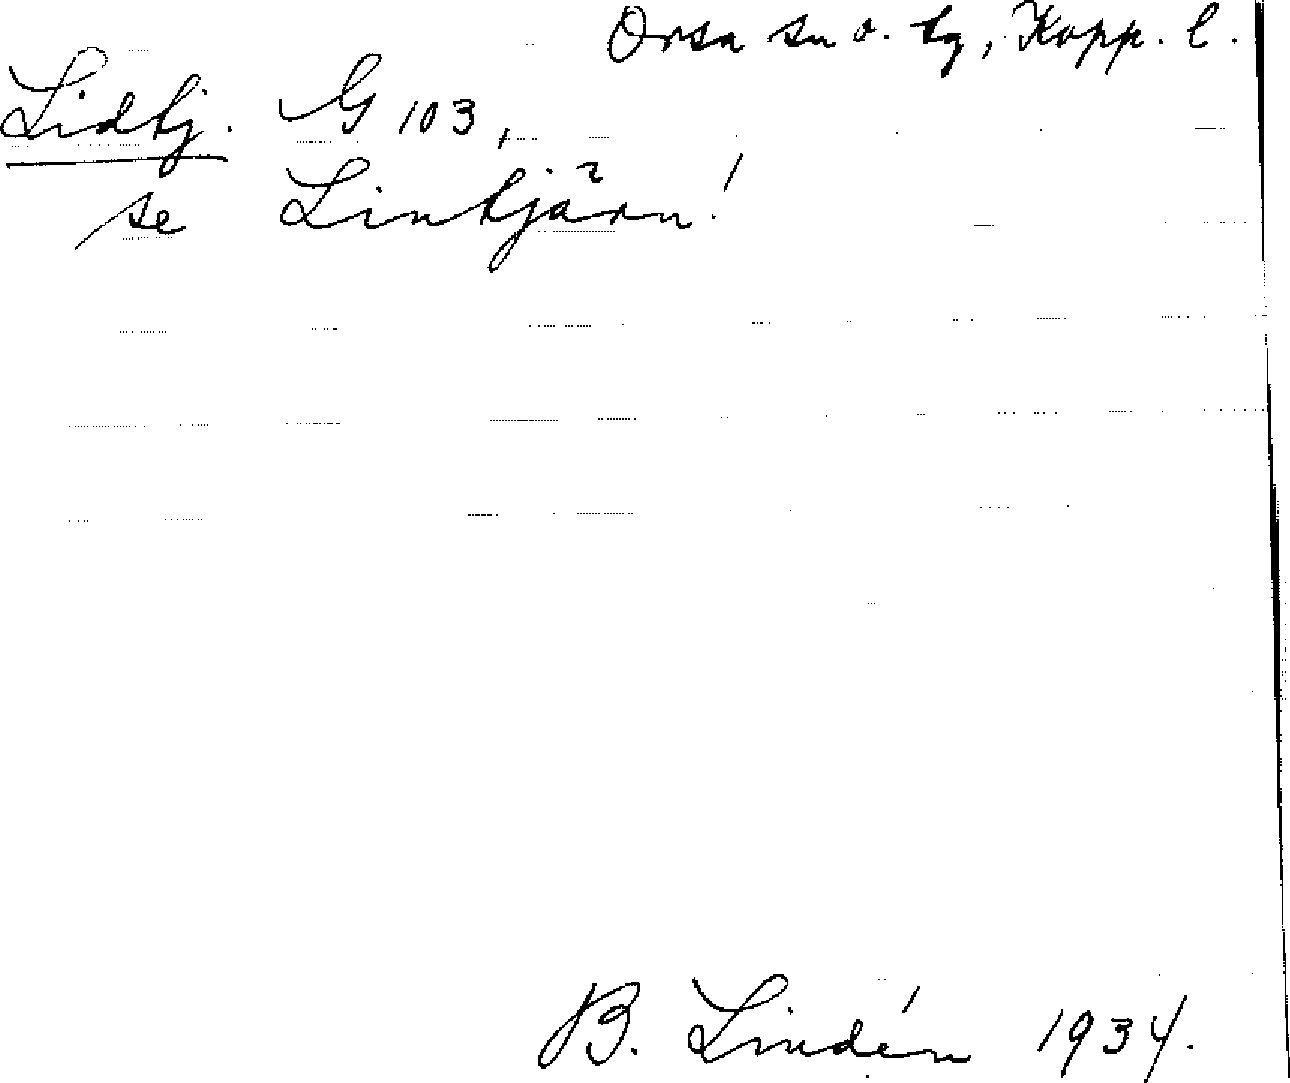 Orsa sn o. tg, Kopp. l.
Lidtj. G 103,
se Lintjärn!
B. Lindén 1934.